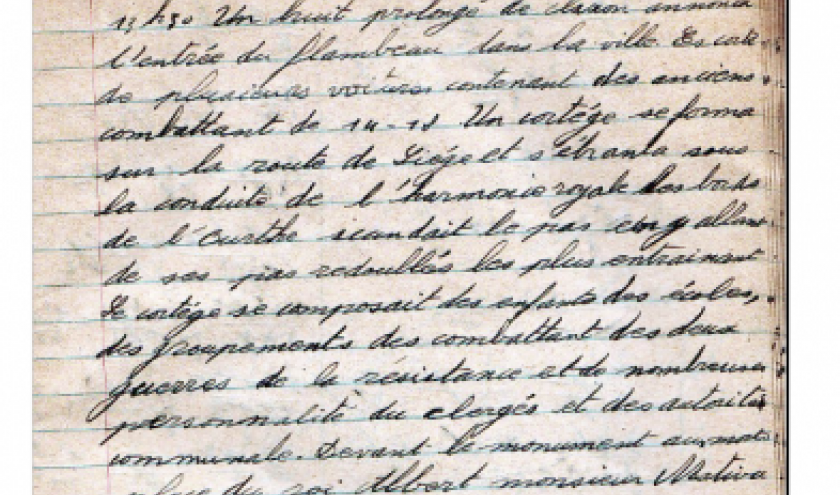 13 h 30 Un huit prolongé de claxon annonca
l'entrée du flambeau dans la ville. Escorte
de plusieurs voitures contenant des anciens
combattant de 14-18 Un cortége se forma
sur la route de Liége et s'ébranla sous
la conduite de l'harmonie royale les bords
de l'Ourthe scandait le pas en y allant
de ses pas redoublés les plus entrainant
Le cortége se composait des enfants des écoles,
des groupements des combattant des deux
guerres de la résistance et de nombreuses
personnalité du clergés et des autorités
communale. Devant le monument aux morts
place du roi Albert monsieur Mativa